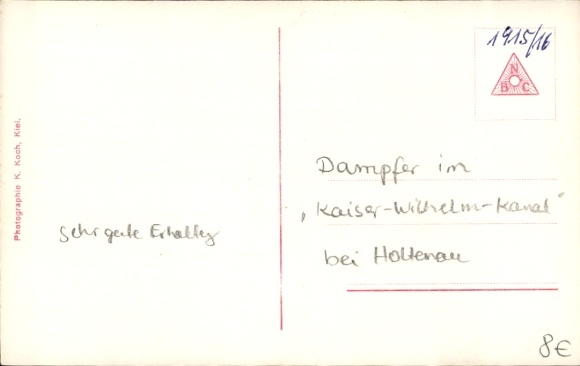 Photographie K. Koch, Kiel.
Sehr gute Erhaltg
1915/16
N
B C
Dampfer im
„Kaiser-Wilhelm-Kanal"
bei Holtenau
8€